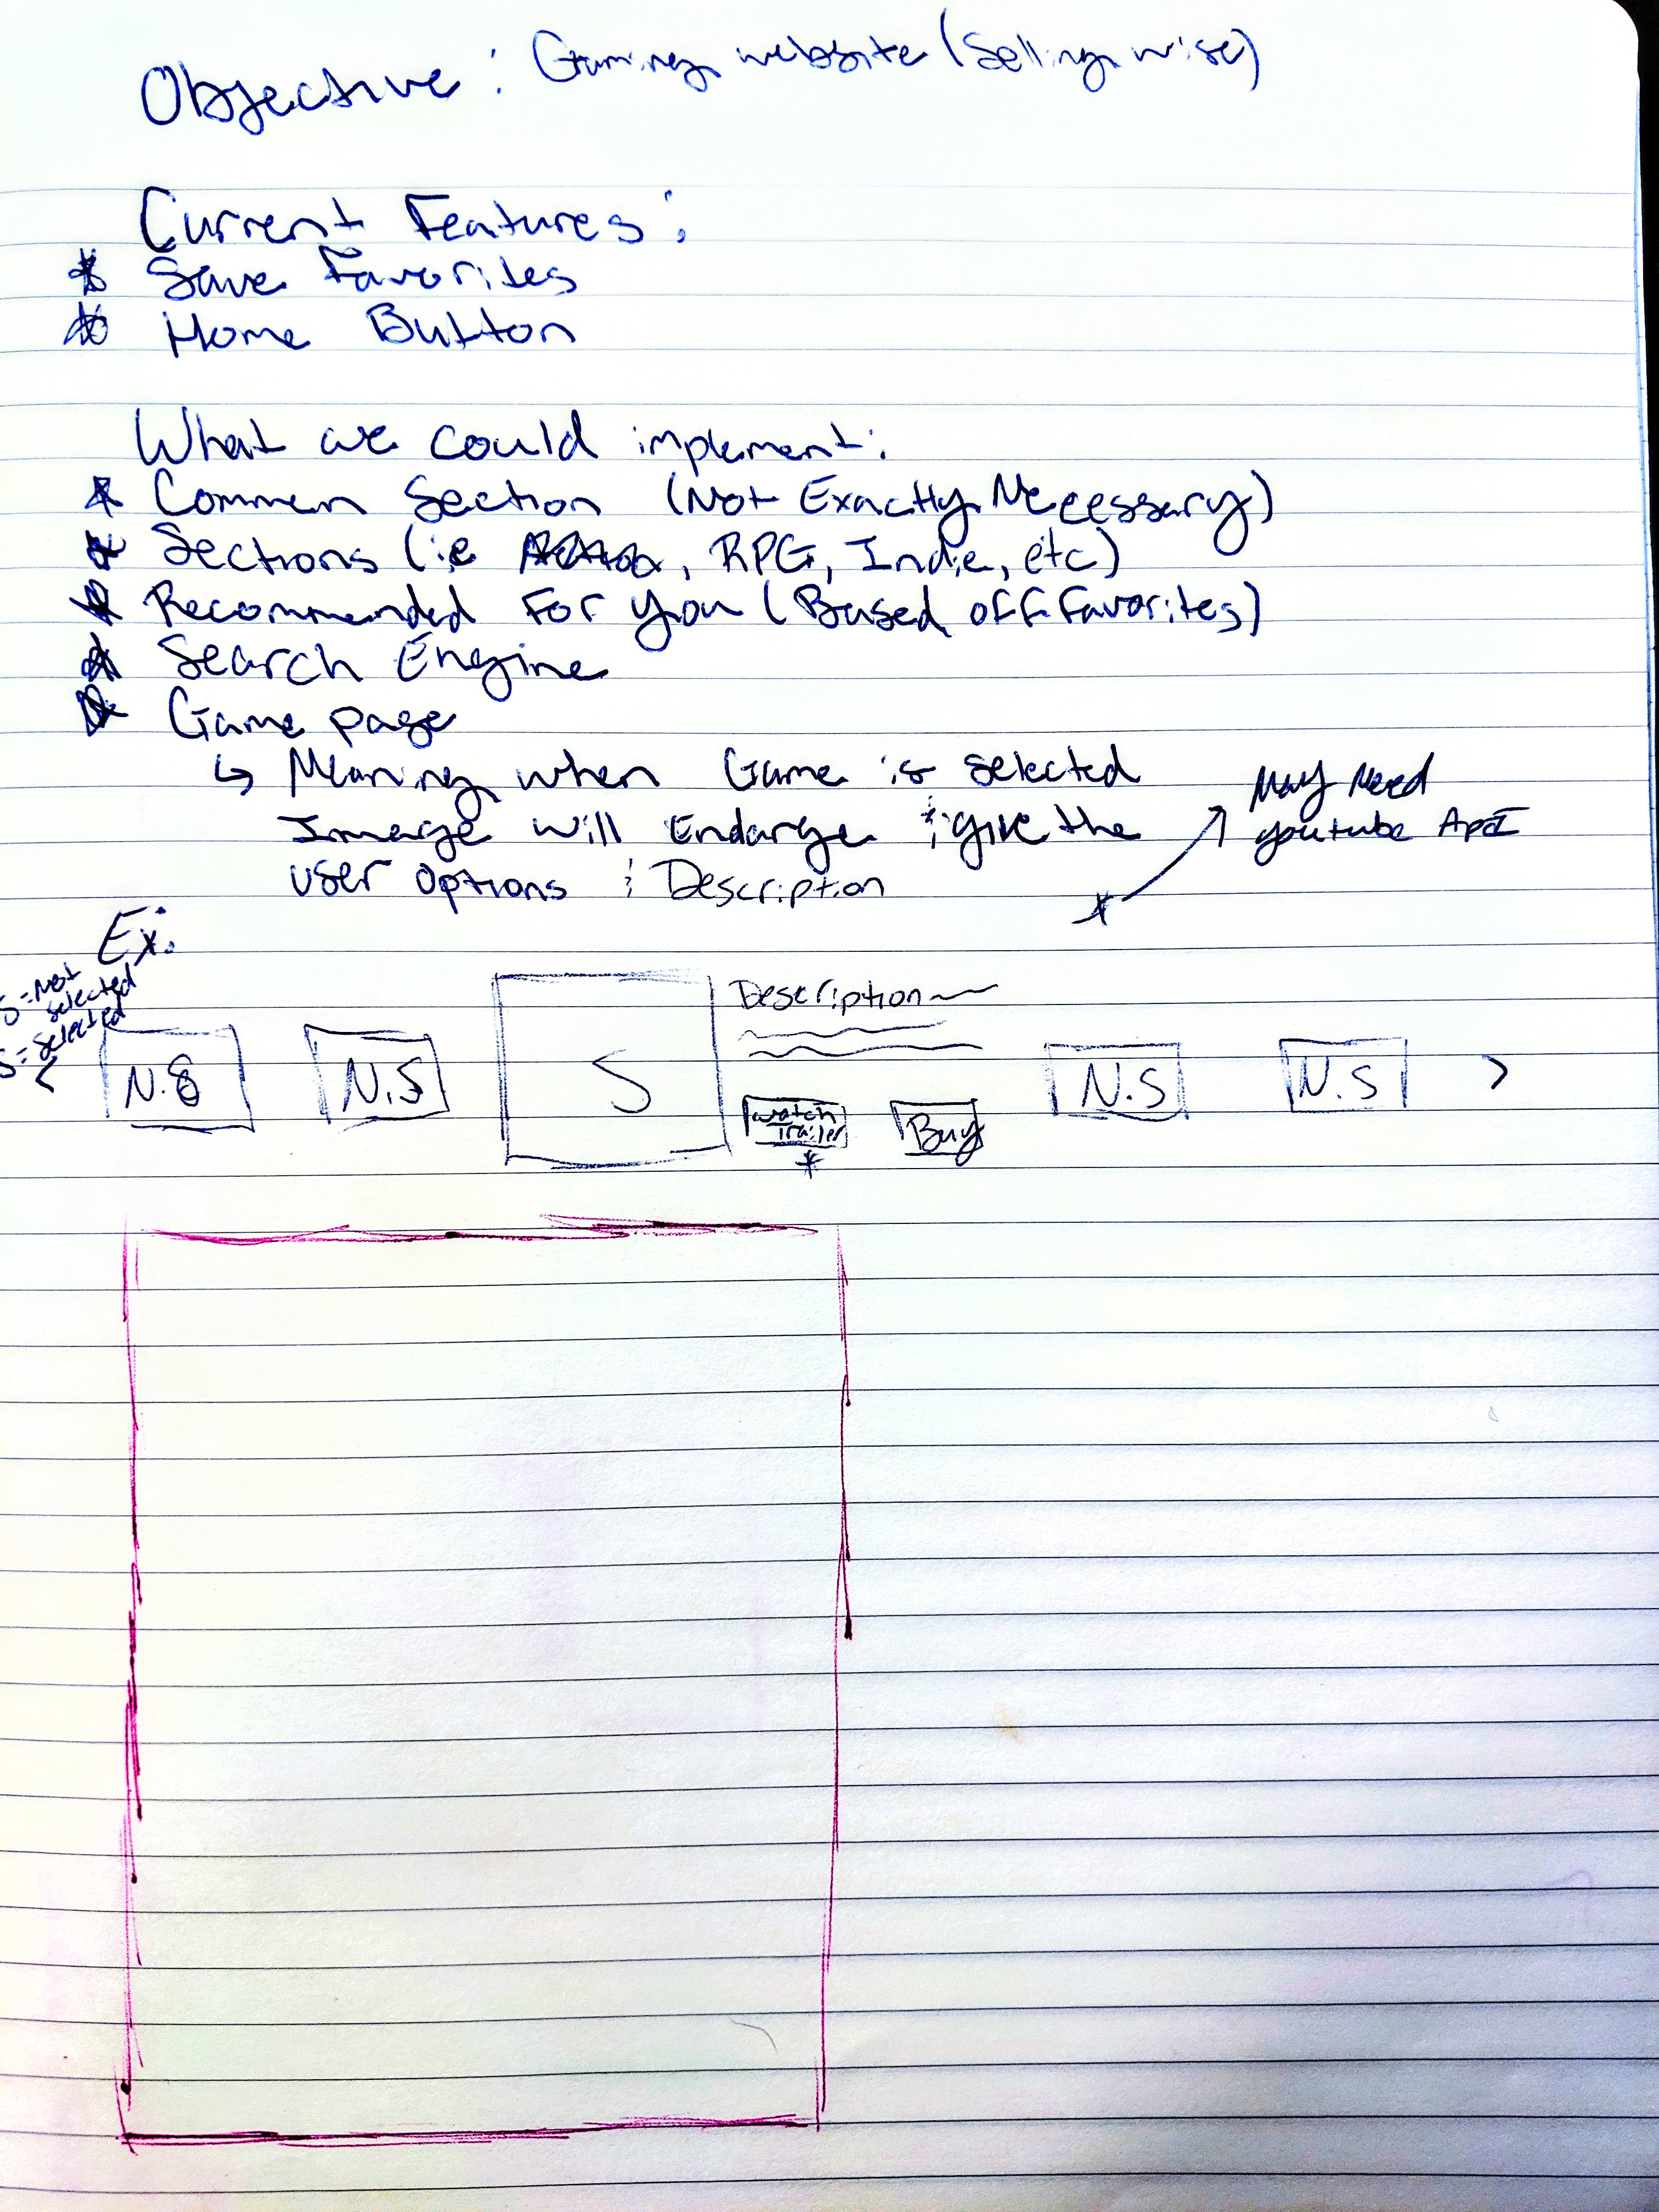 Objective : Gaming website (Selling wise)
Current Features :
* Save Favorites
* Home Button
What we could implement :
* Commen Section (Not Exactly Necessary)
* Sections (i.e , RPG, Indie, etc)
* Recommended For you (Based off Favorites)
* Search Engine
* Game page
↳ Meaning when Game is selected
Image will Enlarge & give the
user options & Description
May Need
youtube ApI
*
Ex:
S = Not
selected
S = Selected
Description
< N.S N.S S N.S N.S >
watch
Trailer
Buy
*